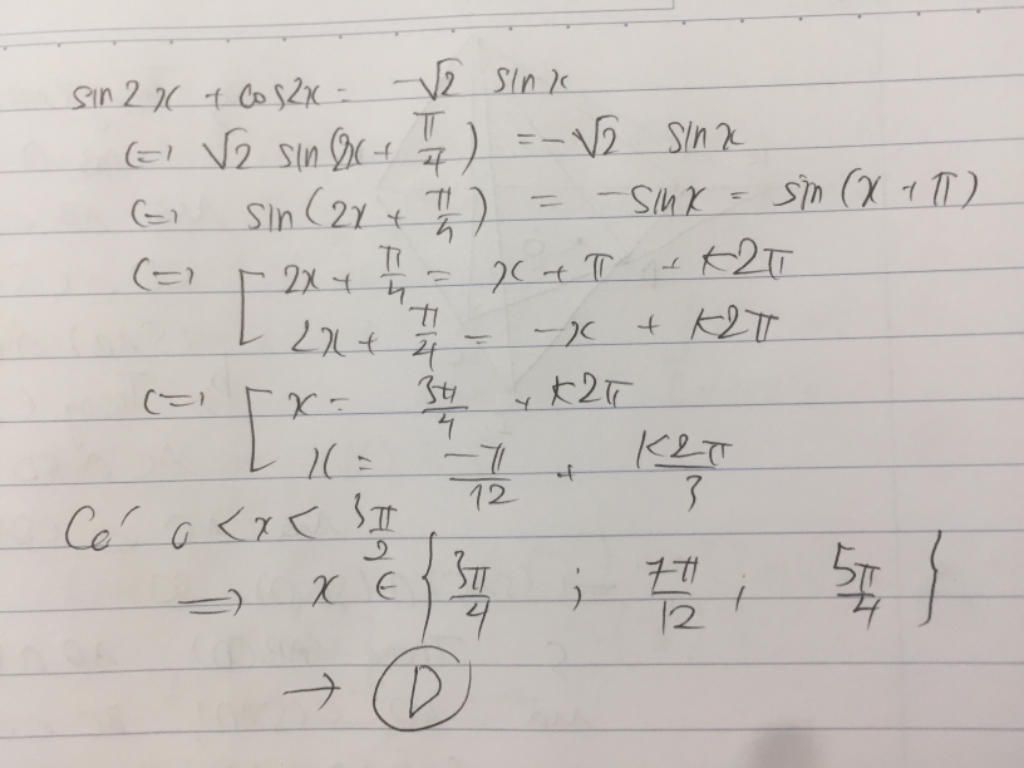 sin2x + cos2x = -√2 sinx
(=) √2 sin(2x + π/4) = -√2 sinx
(=) sin(2x + π/4) = -sinx = sin(x + π)
(=) [ 2x + π/4 = x + π + k2π
2x + π/4 = -x + k2π
(=) [ x = 3π/4 + k2π
x = -π/12 + k2π/3
Có 0 < x < 3π/2
=> x ∈ { 3π/4 ; 7π/12 ; 5π/4 }
→ D